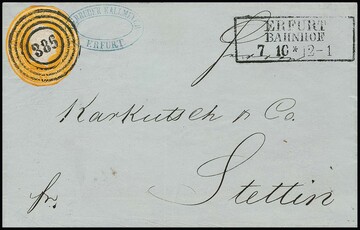 386
GEBRÜDER
ERFURT
ERFURT
BAHNHOF
7 10 * 12-1
Karkutsch & Co.
Stettin
fr.